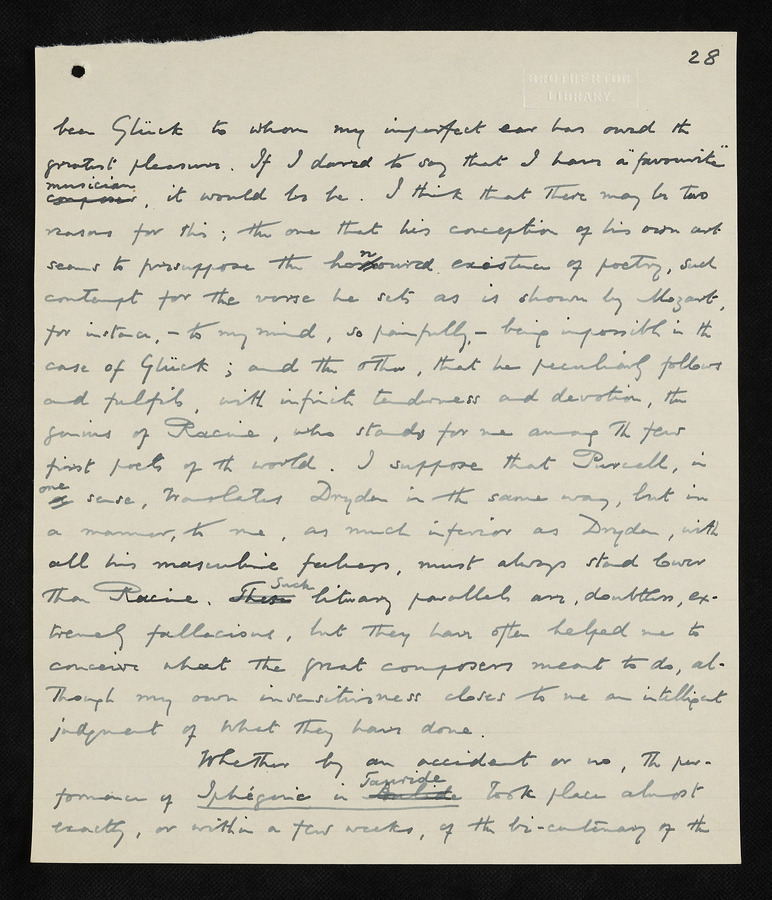 28
BROTHERTON
LIBRARY.
been Glück to whom my imperfect ear has owed the
greatest pleasure. If I dared to say that I have a "favourite"
musician
composer, it would be he. I think that there may be two
reasons for this; the one that his conception of his own art
seems to presuppose the honoured existence of poetry, such
contempt for the verse he sets as is shown by Mozart,
for instance, – to my mind, so painfully, – being impossible in the
case of Glück; and the other, that he peculiarly follows
and fulfils, with infinite tenderness and devotion, the
genius of Racine, who stands for me among the few
first poets of the world. I suppose that Purcell, in
one
a sense, translates Dryden in the same way, but in
a manner, to me, as much inferior as Dryden, with
all his masculine feelings, must always stand lower
Such
than Racine. These literary parallels are, doubtless, ex-
tremely fallacious, but they have often helped me to
conceive what the great composers meant to do, al-
though my own insensitiveness closes to me an intelligent
judgment of what they have done.
Whether by an accident or no, the per-
Tauride
formance of Iphégenie in Aulide took place almost
exactly, or within a few weeks, of the bi-centenary of the